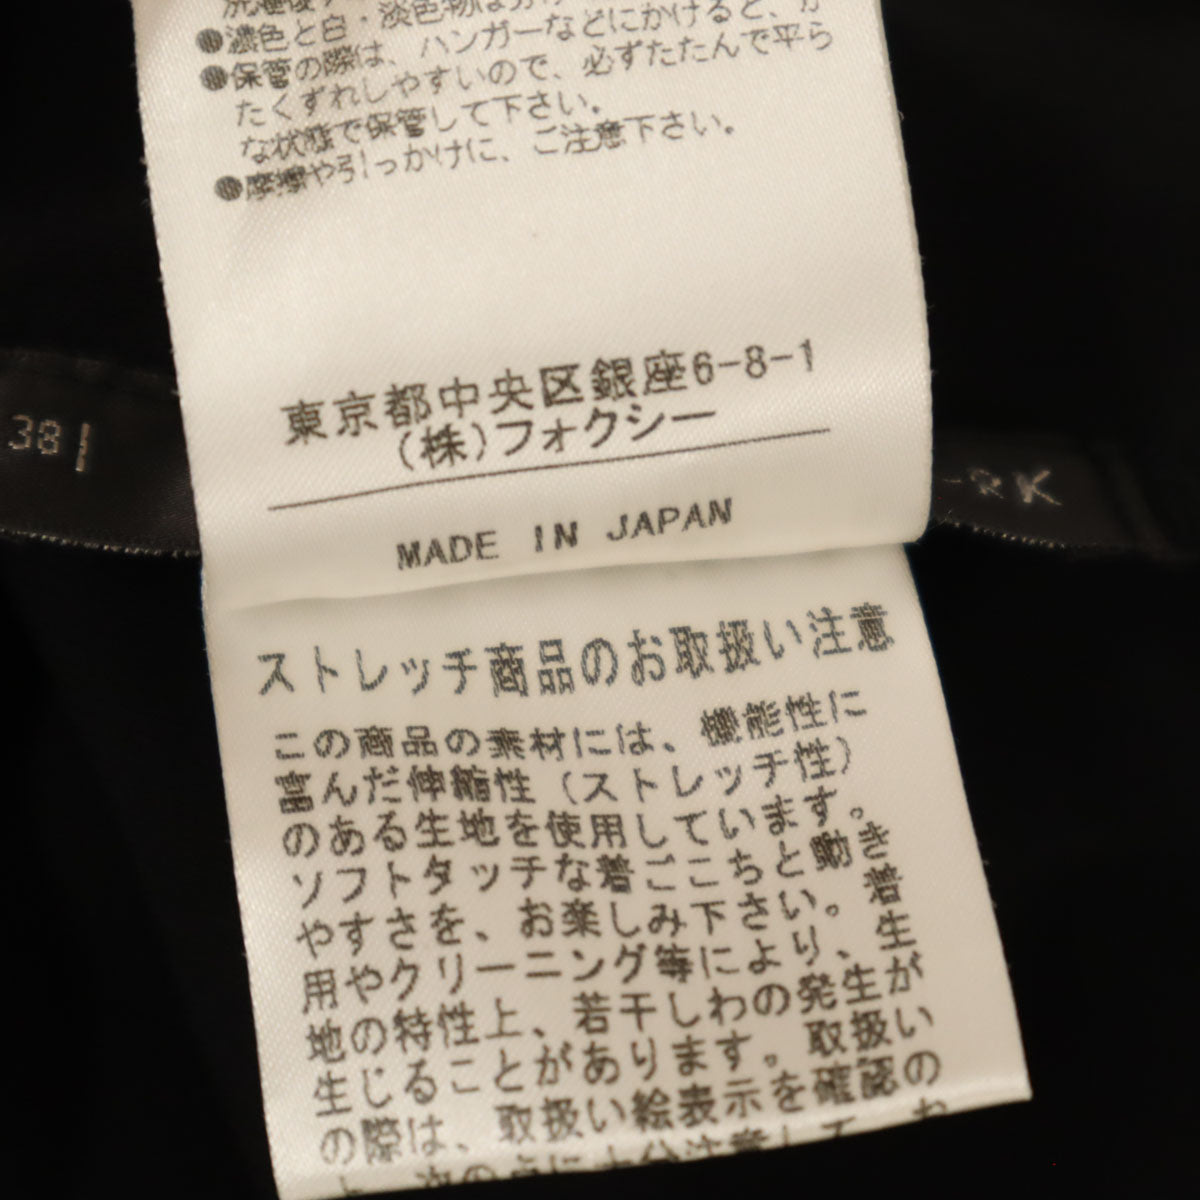 ●濃色と白・淡色物は分け
●保管の際は、ハンガーなどにかけると、か
たくずれしやすいので、必ずたたんで平ら
な状態で保管して下さい。
●摩擦や引っかけに、ご注意下さい。
東京都中央区銀座6-8-1
(株)フォクシー
MADE IN JAPAN
38
-RK
ストレッチ商品のお取扱い注意
この商品の素材には、機能性に
富んだ伸縮性(ストレッチ性)
のある生地を使用しています。
ソフトタッチな着ごこちと動き
やすさを、お楽しみ下さい。着
用やクリーニング等により、生
地の特性上、若干しわの発生が
生じることがあります。取扱い
の際は、取扱い絵表示を確認の
上、次の点に十分注意して、お